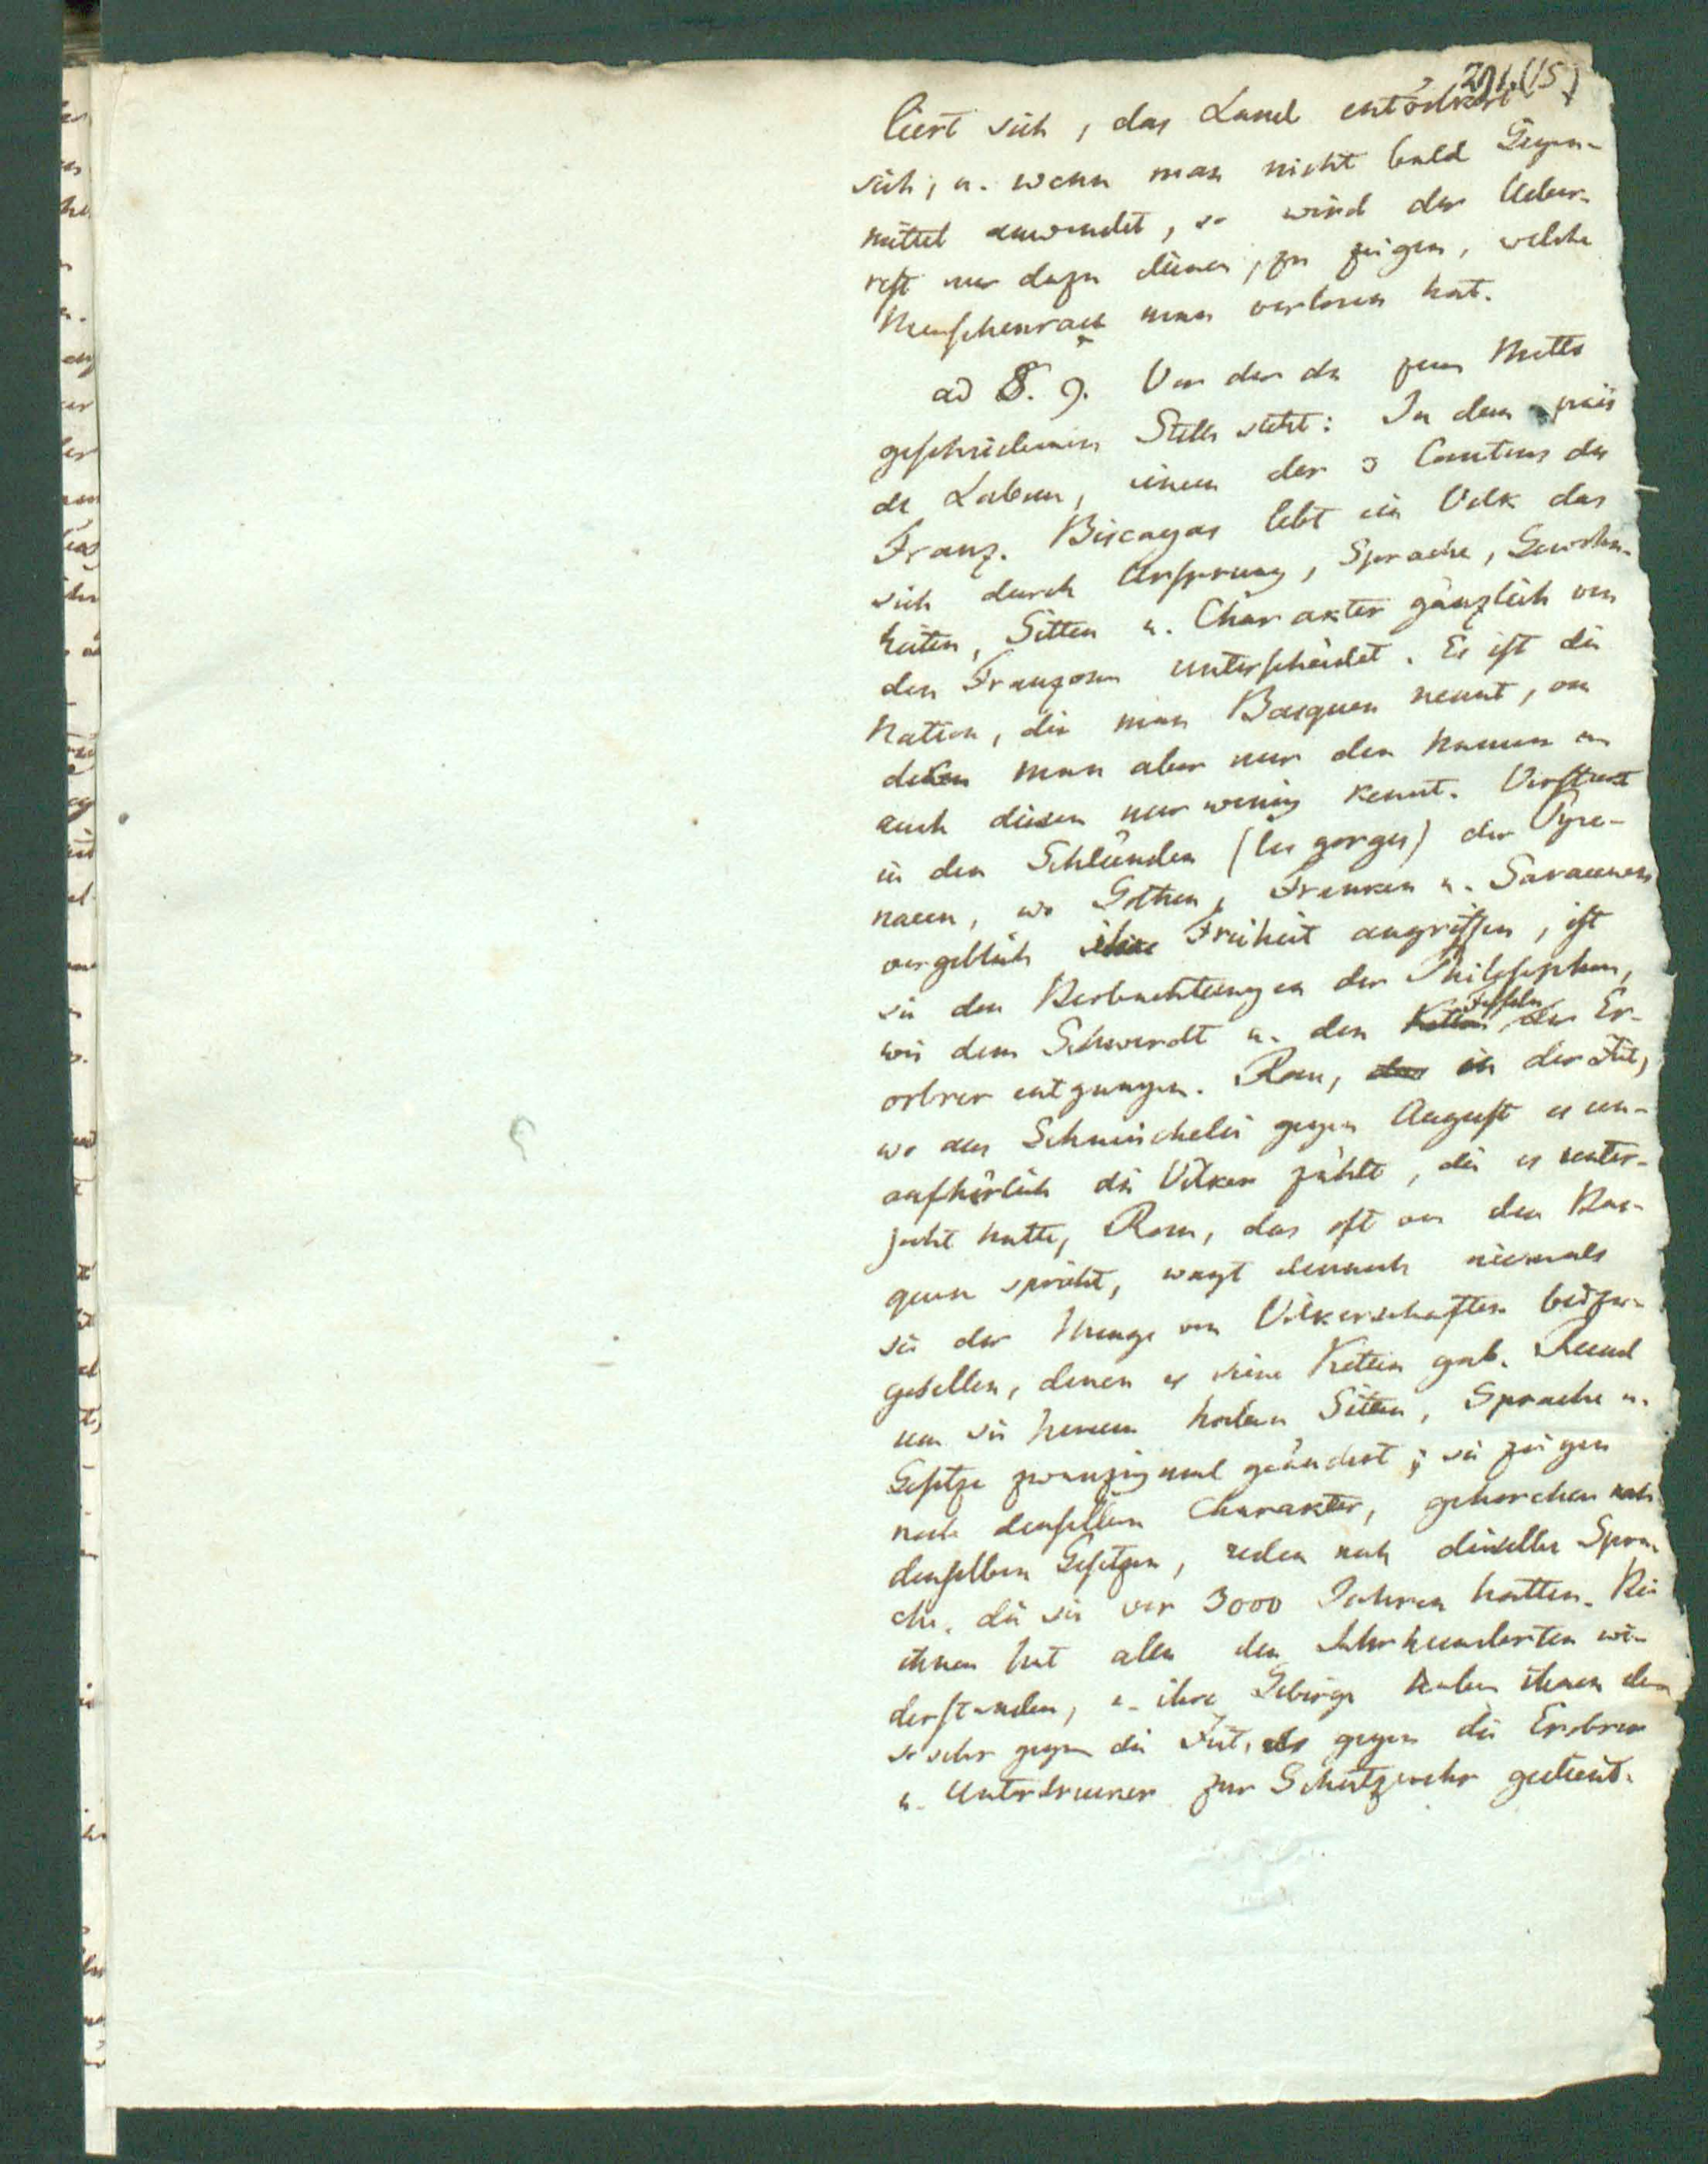 291.(15)
liert sich, das Land entvölkert
sich, u. wenn man nicht bald Gegen-
mittel anwendet, so wird der Ueber-
rest nur dazu dienen, zu zeigen, welche
Menschenrace man verloren hat.
ad 8. 9. Vor der da zum Motto
geschriebenen Stelle steht: In dem païs
de Labour, einem der 3 Cantons des
Franz. Biscayas lebt ein Volk das
sich durch Ursprung, Sprache, Gewohn-
heiten, Sitten u. Charakter gänzlich von
den Franzosen unterscheidet. Es ist die
Nation, die man Basquen nennt, von
denen man aber nur den Namen u.
auch diesen nur wenig kennt. Versteckt
in den Schlünden (les gorges) der Pyre-
naeen, wo Gothen, Franken u. Saracenen
vergeblich ihre Freiheit angriffen, ist
sie den Beobachtungen der Philosophen,
wie dem Schwerdt u. den Fesseln der Er-
obrer entgangen. Rom, in der Zeit,
wo aus Schmeichelei gegen August es un-
aufhörlich die Völker zählte, die es unter-
jocht hatte, Rom, das oft von den Bas-
quen spricht, wagt dennoch niemals
sie der Menge von Völkerschaften beizu-
gesellen, denen es seine Ketten gab. Rund
um sie herum haben Sitten, Sprache u.
Gesetze zwanzigmal geändert; sie zeigen
noch denselben Charakter, gehorchen noch
denselben Gesetzen, reden noch dieselbe Spra-
che, die sie vor 3000 Jahren hatten. Bei
ihnen hat alles den Jahrhunderten wi-
derstanden, u. ihre Gebirge haben ihnen eben
so sehr gegen die Zeit, als gegen die Erobrer
u. Unterdrucker zur Schutzwehr gedient.